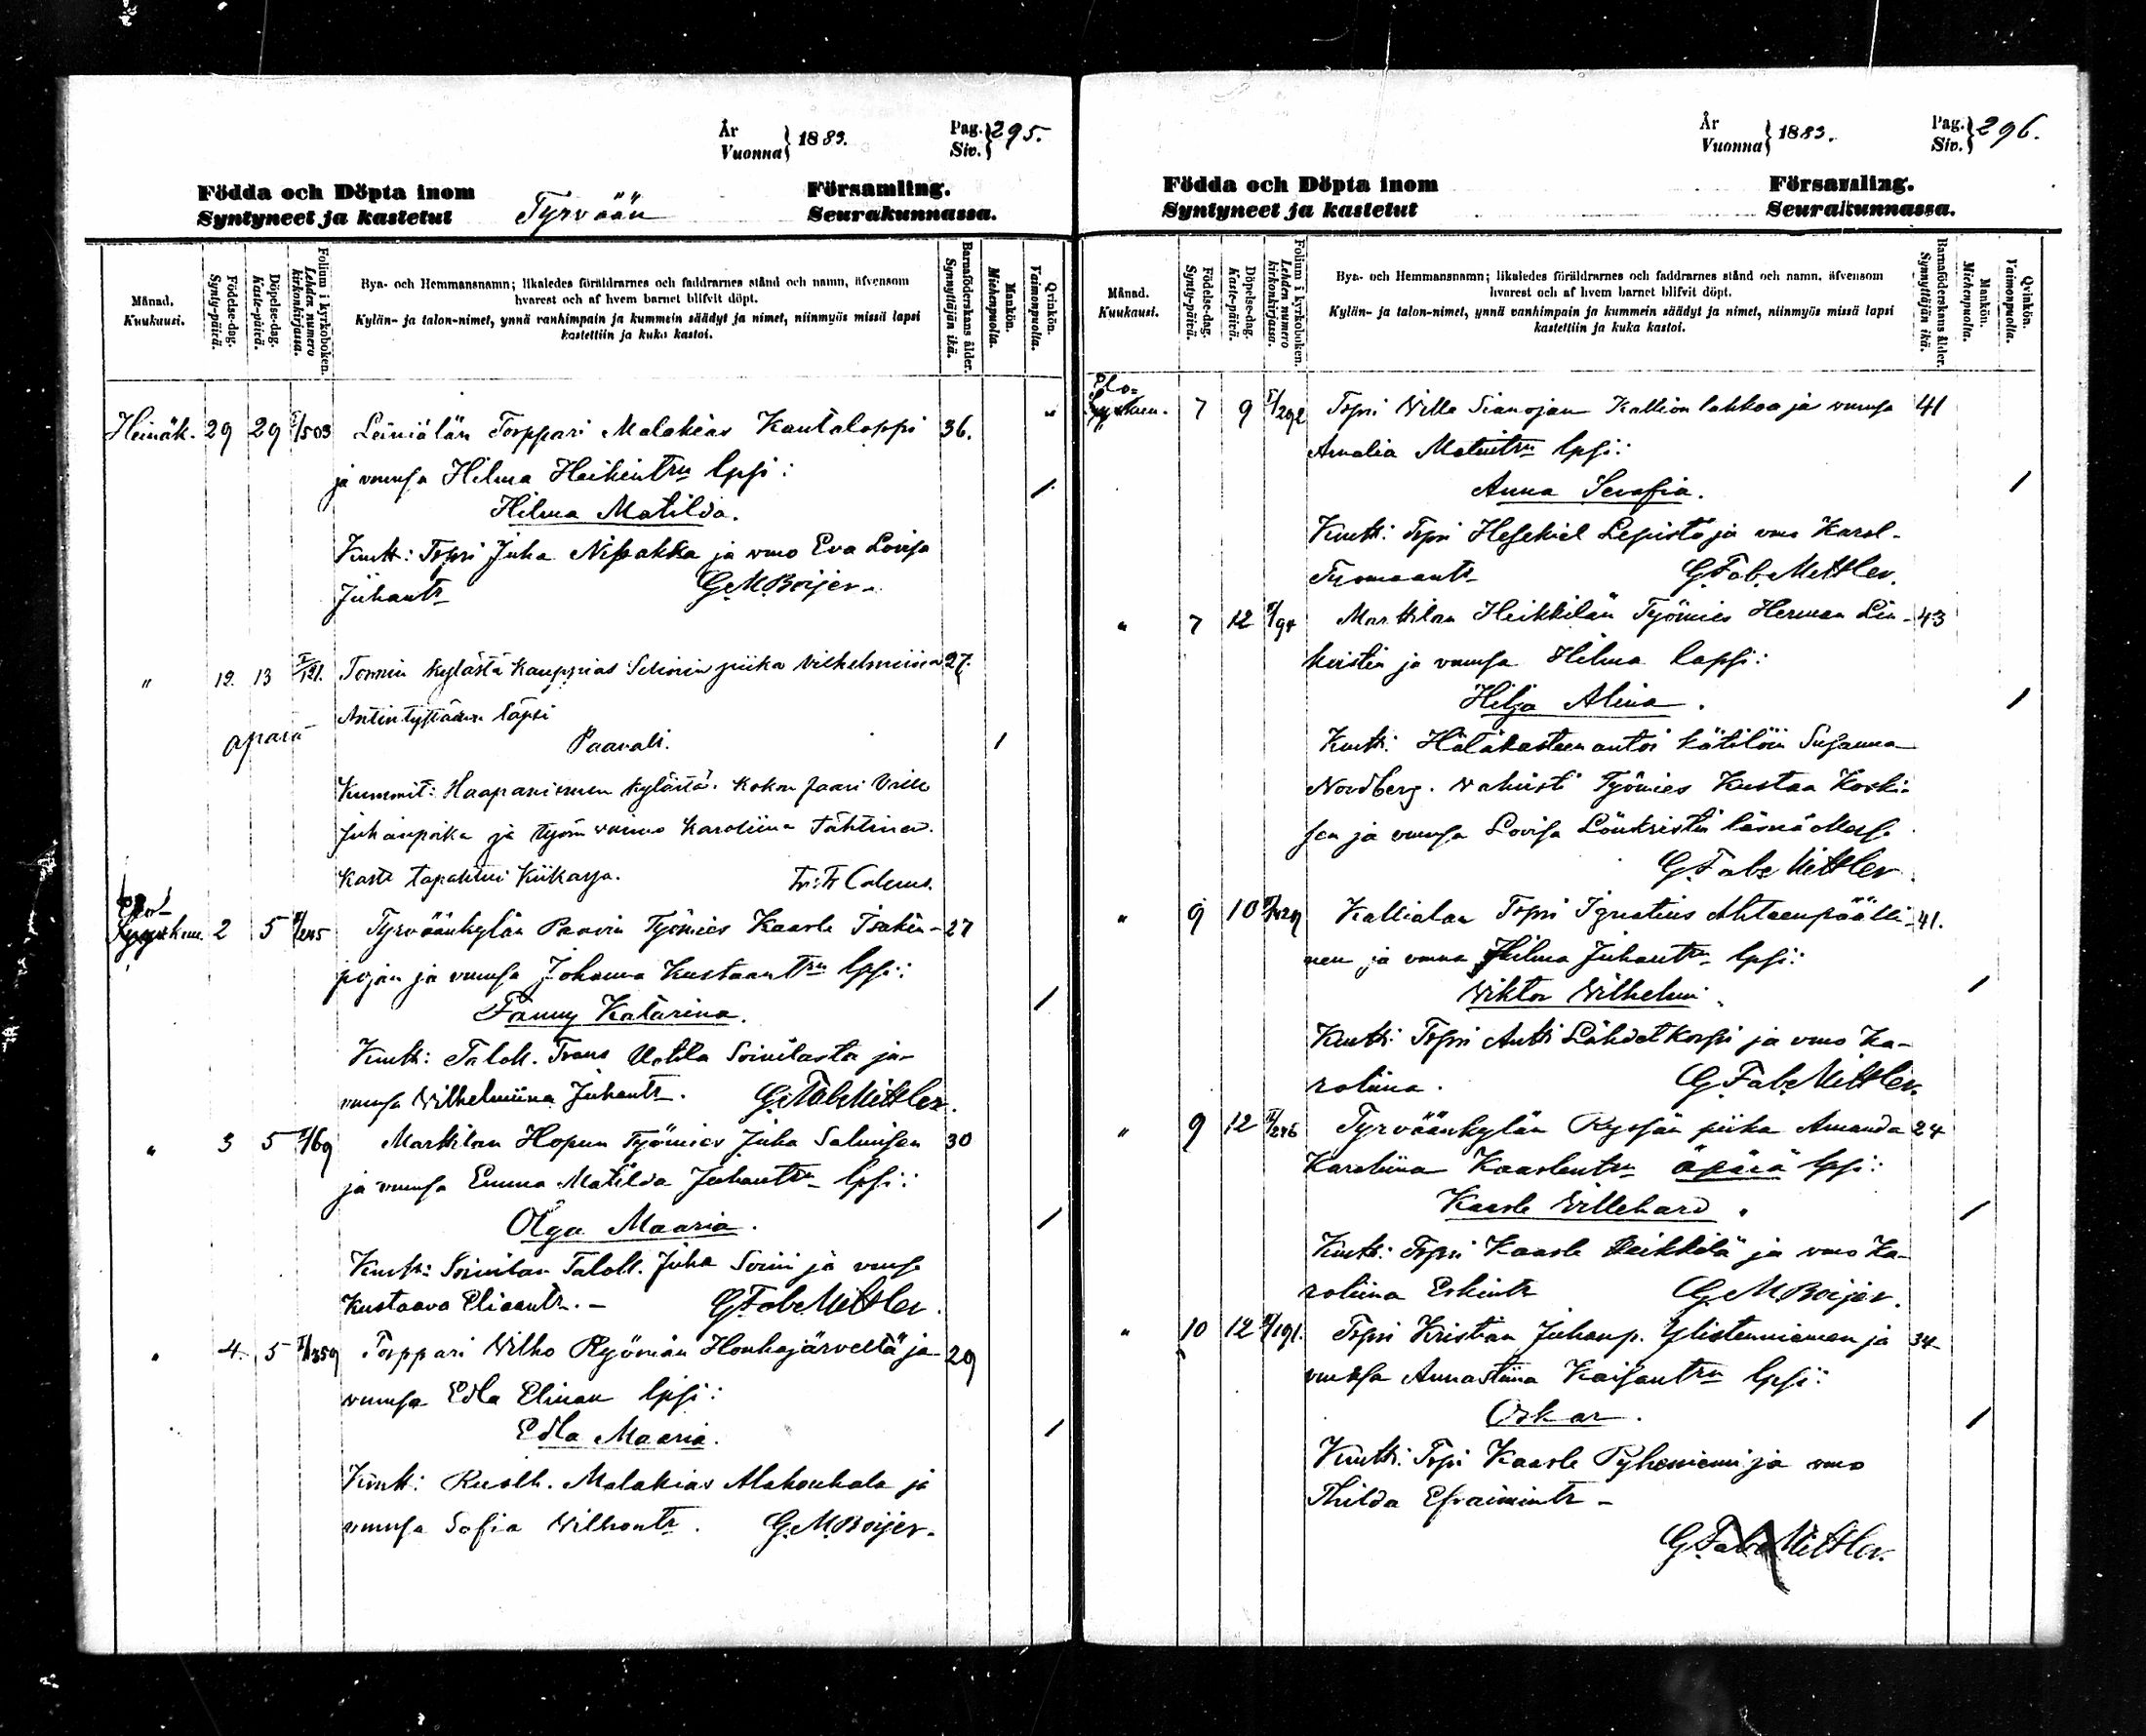 År
Vuonna } 1883.
Pag.
Siv. } 295.
Födda och Döpta inom Församling.
Syntyneet ja kastetut Tyrvään Seurakunnassa.
Månad.
Kuukausi.
Födelse-dag.
Synty-päivä.
Döpelse-dag.
Kaste-päivä.
Folium i kyrkoboken.
Lehden numero
kirkonkirjassa.
Bya- och Hemmansnamn; likaledes föräldrarnes och faddrarnes stånd och namn, äfvensom
hvarest och af hvem barnet blifvit döpt.
Kylän- ja talon-nimet, ynnä vanhimpain ja kummein säädyt ja nimet, niinmyös missä lapsi
kastettiin ja kuka kastoi.
Barnaföderskans ålder.
Synnyttäjän ikä.
Mankön.
Miehenpuolta.
Qvinkön.
Vaimonpuolta.
Heinäk. 29 29 I/503 Leiniälän Torppari Malakias Kantaloppi 36. "
ja vmnsa Hilma Heikintrn lpsi:
Hilma Matilda. /
Kmtt: Tppri Juha Nipakka ja vmo Eva Lovisa
Juhantr G.M.Boijer.
" 12. 13 I/121. Tornin kylästä Kauppias Selinin piika Vilhelmiina 27.
Antintyttären läpsi
apara Paavali. /
Kummit: Haapaniemen kylästä. Kokon Jaari Ville
Juhanpoika ja työm vaimo Karoliina Tähtinen.
Kaste tapahtui Kiikassa. Fr: Fr Calenus.
Elo-
Syyskuu. 2 5 II/245 Tyrväänkylän Paavin Työmies Kaarle Isakin- 27
pojan ja vmnsa Johanna Kustaantrn lpsi:
Fanny Katarina. /
Kmtt: Taloll. Frans Uotila Soinilasta ja
vmnsa Wilhelmiina Juhantr. G.FabeMittler.
" 3 5 I/169 Marttilan Hopun Työmies Juha Salmisen 30
ja vmnsa Emma Matilda Juhantrn lpsi:
Olga Maaria. /
Kmtt: Soinilan Taloll. Juha Soini ja vmnsa
Kustaava Eliaantr. - G.FabeMittler.
" 4. 5 I/1359 Torppari Wilho Ryömän Houhajärveltä ja 29
vmnsa Edla Elinan lpsi:
Edla Maaria. /
Kmtt: Rusth. Malakias Alahouhala ja
vmnsa Sofia Wilhontr. G.M.Boijer.
År
Vuonna } 1883.
Pag.
Siv. } 296.
Födda och Döpta inom Församling.
Syntyneet ja kastetut Seurakunnassa.
Månad.
Kuukausi.
Födelse-dag.
Synty-päivä.
Döpelse-dag.
Kaste-päivä.
Folium i kyrkoboken.
Lehden numero
kirkonkirjassa.
Bya- och Hemmansnamn; likaledes föräldrarnes och faddrarnes stånd och namn, äfvensom
hvarest och af hvem barnet blifvit döpt.
Kylän- ja talon-nimet, ynnä vanhimpain ja kummein säädyt ja nimet, niinmyös missä lapsi
kastettiin ja kuka kastoi.
Barnaföderskans ålder.
Synnyttäjän ikä.
Mankön.
Miehenpuolta.
Qvinkön.
Vaimonpuolta.
Elo-
Syyskuu. 7 9 I/292 Tppri Wille Sianojan Kallion lohkoa ja vmnsa 41
Amalia Matintrn lpsi:
Anna Serafia. /
Kmtt: Tppri Hesekiel Lepistö ja vmo Karol-
Tuomaantr G.FabeMittler.
" 7 12 II/94 Marttilan Heikkilän Työmies Herman Lin- 43
kvistin ja vmnsa Hilma lapsi:
Hilja Alina. /
Kmtt: Hätäkasteen antoi kätilön Susanna
Nordberg. Vahvisti Työmies Kustaa Koski-
sen ja vmnsa Lovisa Lönkvistin läsnäollessa
G.FabeMittler.
" 9 10 Kallialan Tppri Ignatius Ahtaenpäälli- 41.
nen ja vmna Hilma Juhantrn lpsi:
Wiktor Wilhelmi. /
Kmtt: Tppri Antti Lähdetkorpi ja vmo Ka-
roliina. G.FabeMittler.
" 9 12 II/246 Tyrväänkylän Ryssän piika Amanda 24
Karoliina Kaarlentrn äpärä lpsi:
Kaarle Willehard. /
Kmtt: Tppri Kaarle Heikkilä ja vmo Ka-
roliina Erkintr G.M.Boijer.
" 10 12 II/191. Tppri Kristian Juhanp. Ylistenniemen ja 34
vmnsa Annastiina Kaisantrn lpsi:
Oskar. /
Kmtt: Tppi Kaarle Pyheniemi ja vmo
Thilda Efraimintr -
G.FabeMittler.